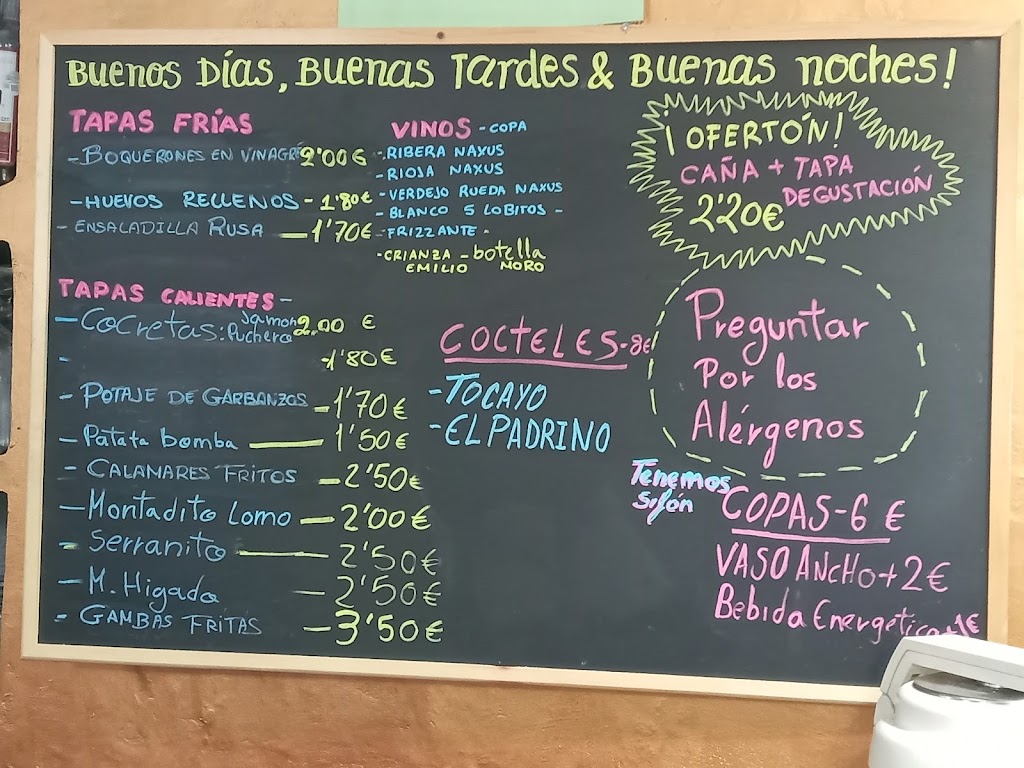 Buenos Días, Buenas Tardes & Buenas noches!
TAPAS FRÍAS
- BOQUERONES EN VINAGRE 2'00 €
- HUEVOS RELLENOS - 1'80€
- ENSALADILLA RUSA — 1'70€
TAPAS CALIENTES -
- COCRETAS: Jamon 2.00 €
Puchero
- - 1'80€
- POTAJE DE GARBANZOS - 1'70€
- Patata bomba — 1'50€
- CALAMARES FRITOS - 2'50€
- Montadito Lomo - 2'00€
- Serranito — 2'50€
- M. Higado - 2'50€
- GAMBAS FRITAS - 3'50€
VINOS - COPA
- RIBERA NAXUS
- RIOJA NAXUS
- VERDEJO RUEDA NAXUS
- BLANCO 5 LOBITOS -
- FRIZZANTE -
- CRIANZA - botella
EMILIO MORO
COCTELES - 8€
- TOCAYO
- EL PADRINO
¡OFERTÓN!
CAÑA + TAPA
DEGUSTACIÓN
2'20€
Preguntar
Por los
Alérgenos
Tenemos
Sifón
COPAS - 6 €
VASO ANCHO + 2€
Bebida Energética +1€